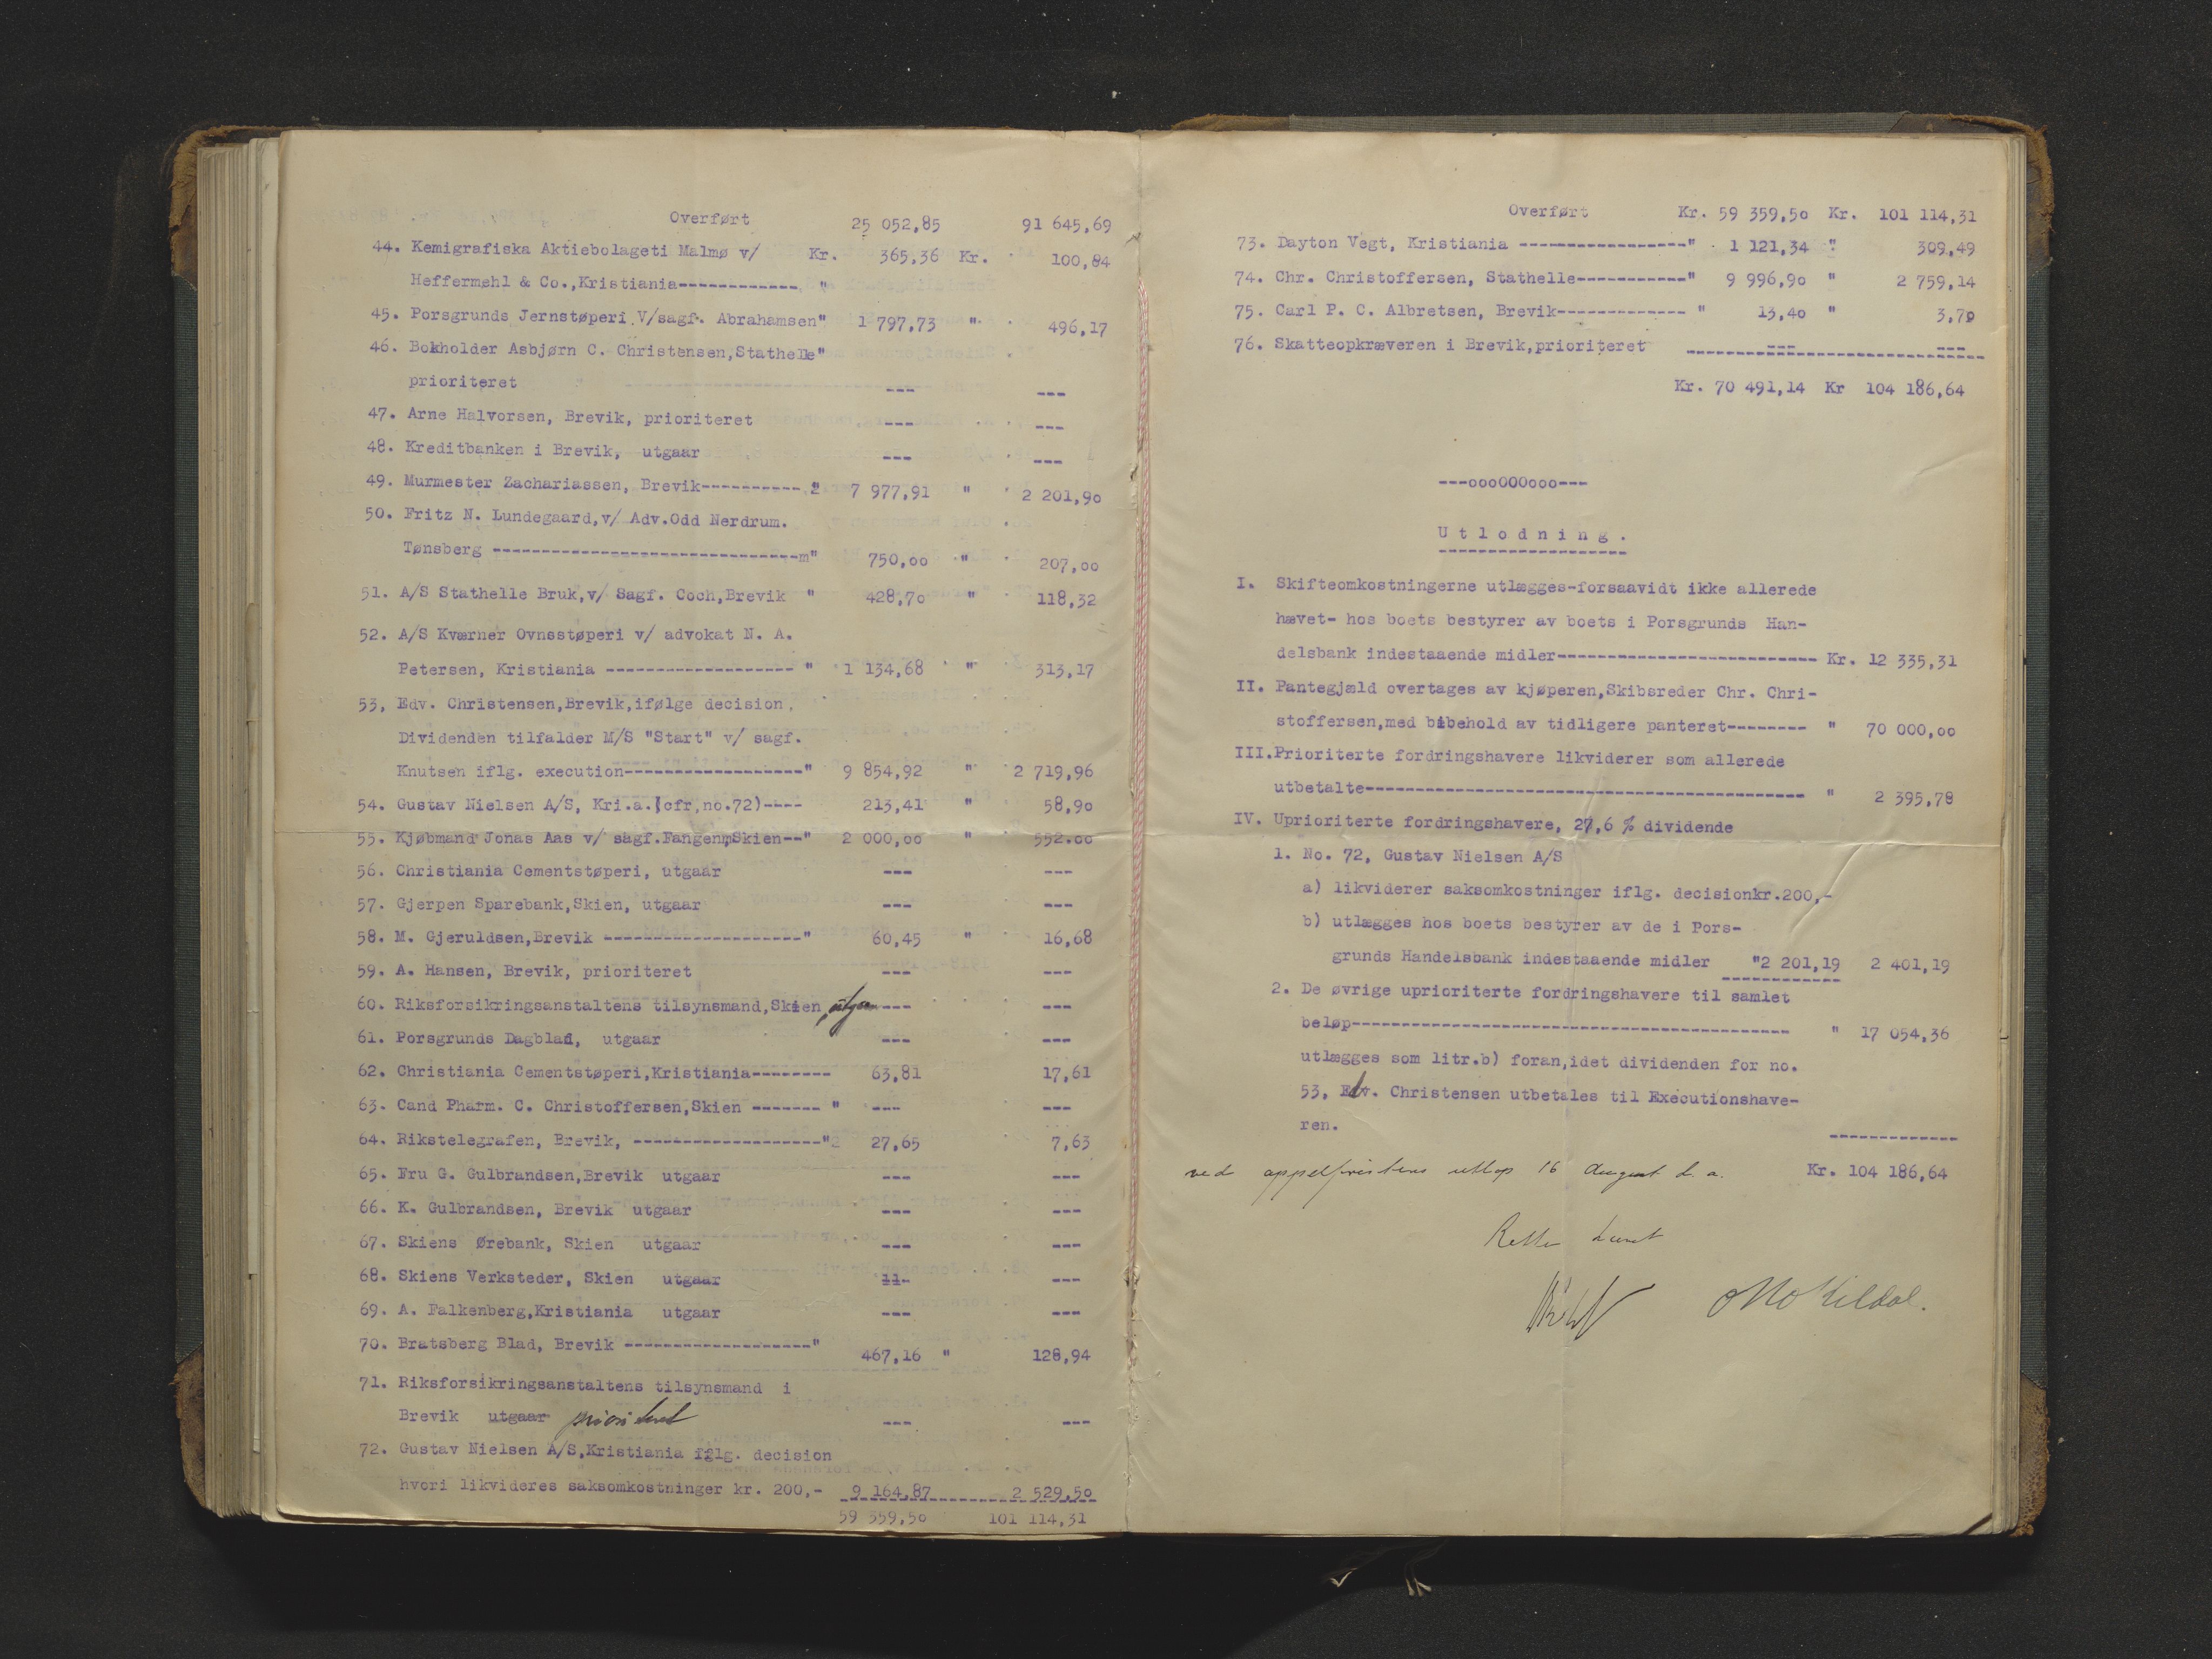 Overført 25 052,85 91 645,69
44. Kemigrafiska Aktiebolageti Malmø v/ Kr. 365,36 Kr. 100,84
Heffermehl & Co.,Kristiania------------ "
45. Porsgrunds Jernstøperi V/sagf. Abrahamsen" 1 797,73 " 496,17
46. Bokholder Asbjørn C. Christensen,Stathelle"
prioriteret --- ---
47. Arne Halvorsen, Brevik, prioriteret --- ---
48. Kreditbanken i Brevik, utgaar --- ---
49. Murmester Zachariassen, Brevik---------- " 7 977,91 " 2 201,90
50. Fritz N. Lundegaard,v/ Adv.Odd Nerdrum.
Tønsberg -------------------------------m" 750,00 " 207,00
51. A/S Stathelle Bruk,v/ Sagf. Coch,Brevik " 428,70 " 118,32
52. A/S Kværner Ovnsstøperi v/ advokat N. A.
Petersen, Kristiania ------------------- " 1 134,68 " 313,17
53, Edv. Christensen,Brevik,ifølge decision,
Dividenden tilfalder M/S "Start" v/ sagf.
Knutsen iflg. execution------------------" 9 854,92 " 2 719,96
54. Gustav Nielsen A/S, Kri.a.(cfr,no.72)---- 213,41 " 58,90
55. Kjøbmand Jonas Aas v/ sagf.Fangen,Skien--" 2 000,00 " 552.00
56. Christiania Cementstøperi, utgaar --- ---
57. Gjerpen Sparebank,Skien, utgaar --- ---
58. M. Gjeruldsen,Brevik --------------------" 60,45 " 16,68
59. A. Hansen, Brevik, prioriteret --- ---
60. Riksforsikringsanstaltens tilsynsmand,Skien, utgaar --- ---
61. Porsgrunds Dagblad, utgaar --- ---
62. Christiania Cementstøperi,Kristiania-------- 63,81 17,61
63. Cand Pharm. C. Christoffersen,Skien ------- " --- ---
64. Rikstelegrafen, Brevik, -------------------" 27,65 7,63
65. Fru G. Gulbrandsen,Brevik utgaar --- ---
66. K. Gulbrandsen, Brevik utgaar --- ---
67. Skiens Ørebank, Skien utgaar --- ---
68. Skiens Verksteder, Skien utgaar --- ---
69. A. Falkenberg,Kristiania utgaar --- ---
70. Bratsberg Blad, Brevik -------------------" 467,16 " 128,94
71. Riksforsikringsanstaltens tilsynsmand i
Brevik utgaar prioritert --- ---
72. Gustav Nielsen A/S,Kristiania iflg. decision
hvori likvideres saksomkostninger kr. 200,- 9 164,87 2 529,50
59 359,50 101 114,31
Overført Kr. 59 359,50 Kr. 101 114,31
73. Dayton Vegt, Kristiania -----------------" 1 121,34 " 309,49
74. Chr. Christoffersen, Stathelle-----------" 9 996,90 " 2 759,14
75. Carl P. C. Albretsen, Brevik------------- " 13,40 " 3,70
76. Skatteopkræveren i Brevik,prioriteret --- ---
Kr. 70 491,14 Kr 104 186,64
---oooOOOooo---
Utlodning.
I. Skifteomkostningerne utlægges-forsaavidt ikke allerede
hævet- hos boets bestyrer av boets i Porsgrunds Han-
delsbank indestaaende midler-------------------------- Kr. 12 335,31
II. Pantegjæld overtages av kjøperen,Skibsreder Chr. Chri-
stoffersen,med bibehold av tidligere panteret-------- " 70 000,00
III.Prioriterte fordringshavere likviderer som allerede
utbetalte-------------------------------------------- " 2 395,78
IV. Uprioriterte fordringshavere, 27,6 % dividende
1. No. 72, Gustav Nielsen A/S
a) likviderer saksomkostninger iflg. decisionkr.200,-
b) utlægges hos boets bestyrer av de i Pors-
grunds Handelsbank indestaaende midler "2 201,19 2 401,19
2. De øvrige uprioriterte fordringshavere til samlet
beløp-------------------------------------------- " 17 054,36
utlægges som litr.b) foran,idet dividenden for no.
53, Edv. Christensen utbetales til Executionshave-
ren.
ved appelfristens utløp 16 august d. a. Kr. 104 186,64
Retten hævet
Otto Kildal.